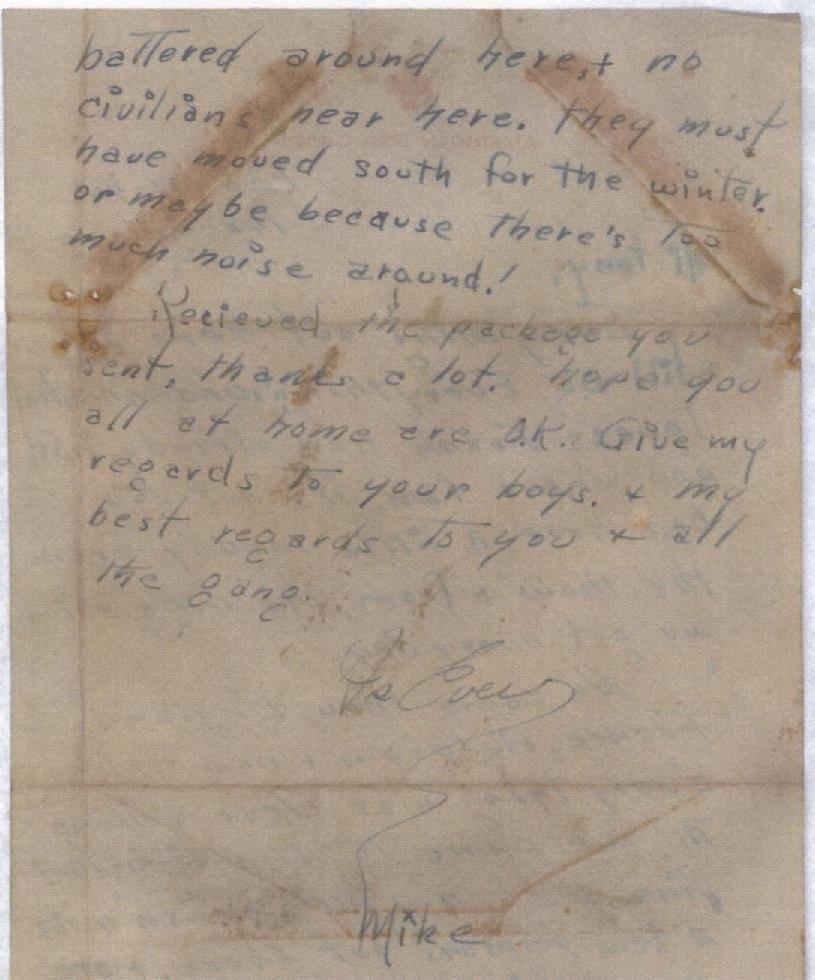 battered around here, + no
civilians near here. They must
have moved south for the winter.
or maybe because there's too
much noise around!
Recieved the package you
sent, thanks a lot. hope you
all at home are O.K. Give my
regards to your boys. + my
best regards to you + all
the gang.
As Ever
Mike